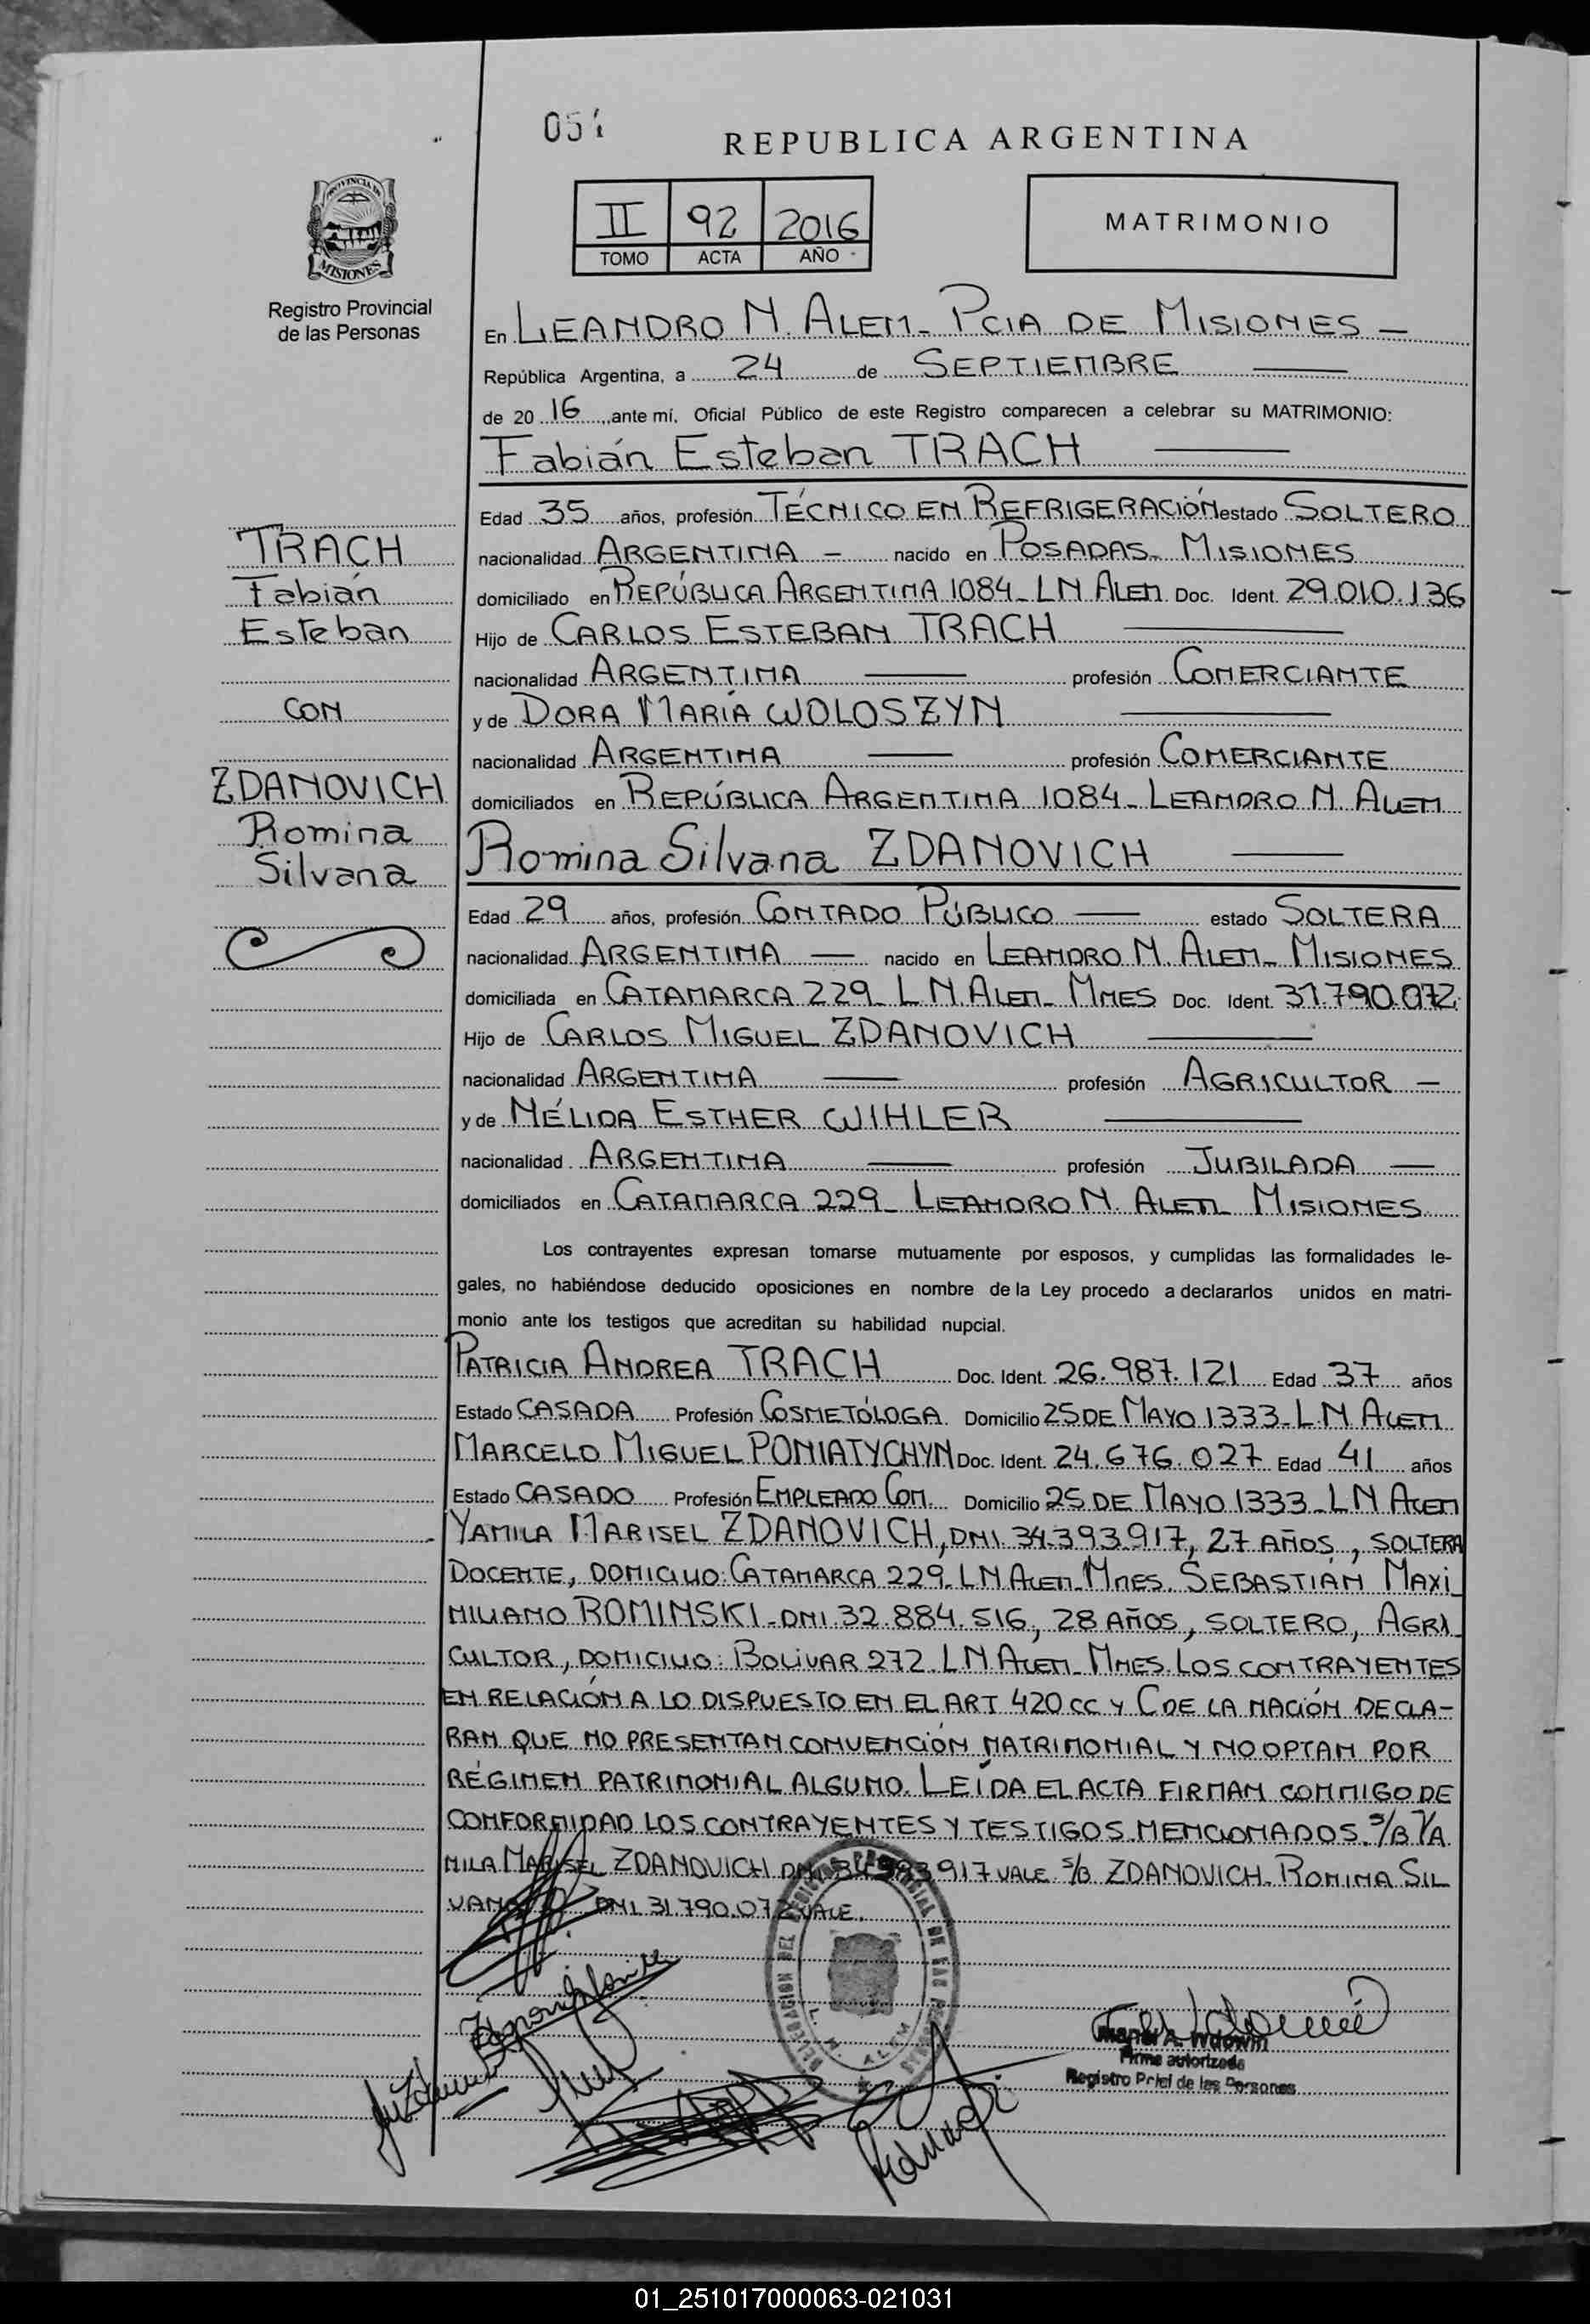 051
REPUBLICA ARGENTINA
PROVINCIA DE
MISIONES
Registro Provincial
de las Personas
II 92 2016
TOMO ACTA AÑO
MATRIMONIO
En LEANDRO N. ALEM - PCIA DE MISIONES -
República Argentina, a 24 de SEPTIEMBRE
de 20 16 ,ante mí, Oficial Público de este Registro comparecen a celebrar su MATRIMONIO:
Fabián Esteban TRACH
Edad 35 años, profesión TÉCNICO EN REFRIGERACIÓN estado SOLTERO
nacionalidad ARGENTINA - nacido en POSADAS - MISIONES
domiciliado en REPÚBLICA ARGENTINA 1084 - LN ALEM Doc. Ident. 29.010.136
Hijo de CARLOS ESTEBAN TRACH
nacionalidad ARGENTINA profesión COMERCIANTE
y de DORA MARÍA WOLOSZYN
nacionalidad ARGENTINA profesión COMERCIANTE
domiciliados en REPÚBLICA ARGENTINA 1084 - LEANDRO N. ALEM
TRACH
Fabián
Esteban
CON
ZDANOVICH
Romina
Silvana
Romina Silvana ZDANOVICH
Edad 29 años, profesión CONTADO PÚBLICO estado SOLTERA
nacionalidad ARGENTINA - nacido en LEANDRO N. ALEM - MISIONES
domiciliada en CATAMARCA 229 - L N. ALEM - MNES Doc. Ident. 31.790.072
Hijo de CARLOS MIGUEL ZDANOVICH
nacionalidad ARGENTINA profesión AGRICULTOR -
y de NÉLIDA ESTHER WIHLER
nacionalidad ARGENTINA profesión JUBILADA
domiciliados en CATAMARCA 229 - LEANDRO N. ALEM MISIONES
Los contrayentes expresan tomarse mutuamente por esposos, y cumplidas las formalidades le-
gales, no habiéndose deducido oposiciones en nombre de la Ley procedo a declararlos unidos en matri-
monio ante los testigos que acreditan su habilidad nupcial.
PATRICIA ANDREA TRACH Doc. Ident. 26.987.121 Edad 37 años
Estado CASADA Profesión COSMETÓLOGA Domicilio 25 DE MAYO 1333 - L.N ALEM
MARCELO MIGUEL PONIATYCHYN Doc. Ident. 24.676.027 Edad 41 años
Estado CASADO Profesión EMPLEADO COM. Domicilio 25 DE MAYO 1333 - LN ALEM
YAMILA MARISEL ZDANOVICH, DNI 34.393.917, 27 AÑOS, SOLTERA
DOCENTE, DOMICILIO: CATAMARCA 229 - LN ALEM - MNES. SEBASTIÁN MAXI
MILIANO ROMINSKI - DNI. 32.884.516, 28 AÑOS, SOLTERO, AGRI
CULTOR, DOMICILIO: BOLIVAR 272. L.N ALEM - MNES. LOS CONTRAYENTES
EN RELACIÓN A LO DISPUESTO EN EL ART 420 CC Y C DE LA NACIÓN DECLA-
RAN QUE NO PRESENTAN CONVENCIÓN MATRIMONIAL Y NO OPTAN POR
RÉGIMEN PATRIMONIAL ALGUNO. LEÍDA EL ACTA FIRMAN CONMIGO DE
CONFORMIDAD LOS CONTRAYENTES Y TESTIGOS MENCIONADOS. S/B YA
MILA MARISEL ZDANOVICH DNI 34393917 VALE. S/B ZDANOVICH - ROMINA SIL
VANA DNI. 31.790.072 VALE.
L. N. ALEM
Firma autorizada
Registro Prici de las Personas
01_251017000063-021031